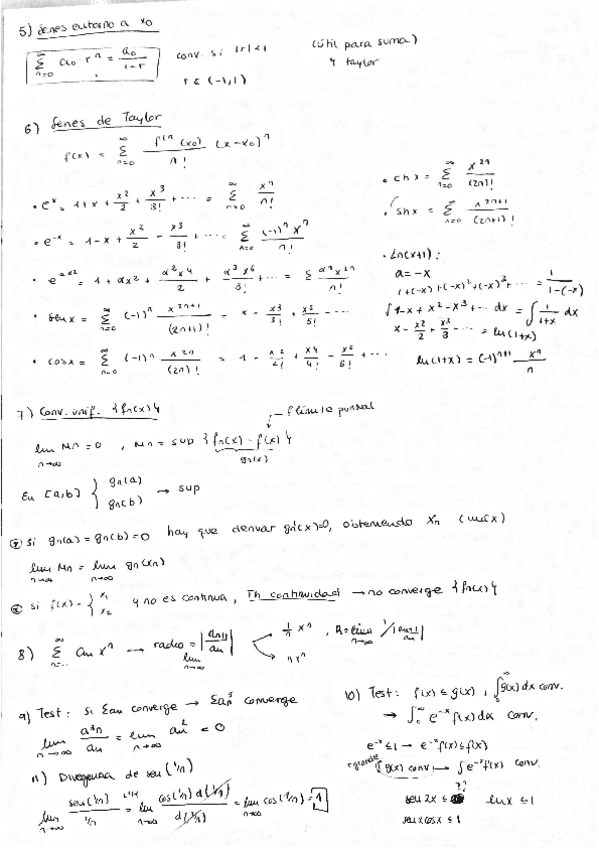 5) Series entorno a x0
∞Σn=0 a0·rⁿ = a0/(1-r) conv. si |r|<1 (útil para suma)
r ∈ (-1,1) y taylor
6) Series de Taylor
f(x) = ∞Σn=0 fⁿ(x0)/n! (x-x0)ⁿ
• eˣ = 1+x+x²/2+x³/3!+··· = ∞Σn=0 xⁿ/n!
• e⁻ˣ = 1-x+x²/2-x³/3!+··· = ∞Σn=0 (-1)ⁿxⁿ/n!
• e^(αx²) = 1+αx²+α²x⁴/2+α³x⁶/3!+··· = Σ αⁿx²ⁿ/n!
• senx = ∞Σn=0 (-1)ⁿ x²ⁿ⁺¹/(2n+1)! = x-x³/3!+x⁵/5!-···
• cosx = ∞Σn=0 (-1)ⁿ x²ⁿ/(2n)! = 1-x²/2!+x⁴/4!-x⁶/6!+···
• chx = ∞Σn=0 x²ⁿ/(2n)!
• shx = ∞Σn=0 x²ⁿ⁺¹/(2n+1)!
• Ln(x+1):
a=-x
1+(-x)+(-x)²+(-x)³+··· = 1/(1-(-x))
∫1-x+x²-x³+··· dx = ∫1/(1+x) dx
x-x²/2+x³/3··· = ln(1+x)
ln(1+x) = (-1)ⁿ⁺¹ xⁿ/n
7) Conv. unif. {fn(x)}
límite puntual
lim n→∞ Mn = 0, Mn = sup {fn(x) - f(x)}
gn(x)
En [a,b] { gn(a) gn(b) → sup
si gn(a) = gn(b) = 0 hay que derivar gn'(x)=0, obteniendo Xn (máx)
lim n→∞ Mn = lim n→∞ gn(xn)
si f(x) = { x1 x2 y no es continua, Th continuidad → no converge {fn(x)}
8) ∞Σ an xⁿ → radio = lim |an+1/an| 1/n xⁿ
n xⁿ
9) Test: si Σan converge → Σan³ converge
lim n→∞ a³n/an = lim n→∞ an² = 0
10) Test: f(x) ≤ g(x), ∫g(x)dx conv.
→ ∫ e⁻ˣ f(x)dx conv.
e⁻ˣ ≤ 1 → e⁻ˣf(x) ≤ f(x)
g(x) conv → ∫e⁻ˣf(x) conv.
sen2x ≤
lnx ≤ 1
senxcosx ≤ 1
11) Divergencia de sen(1/n)
lim n→∞ sen(1/n)/(1/n) = L'H lim n→∞ cos(1/n) d(1/n)/d(1/n) = lim cos(1/n) = 1